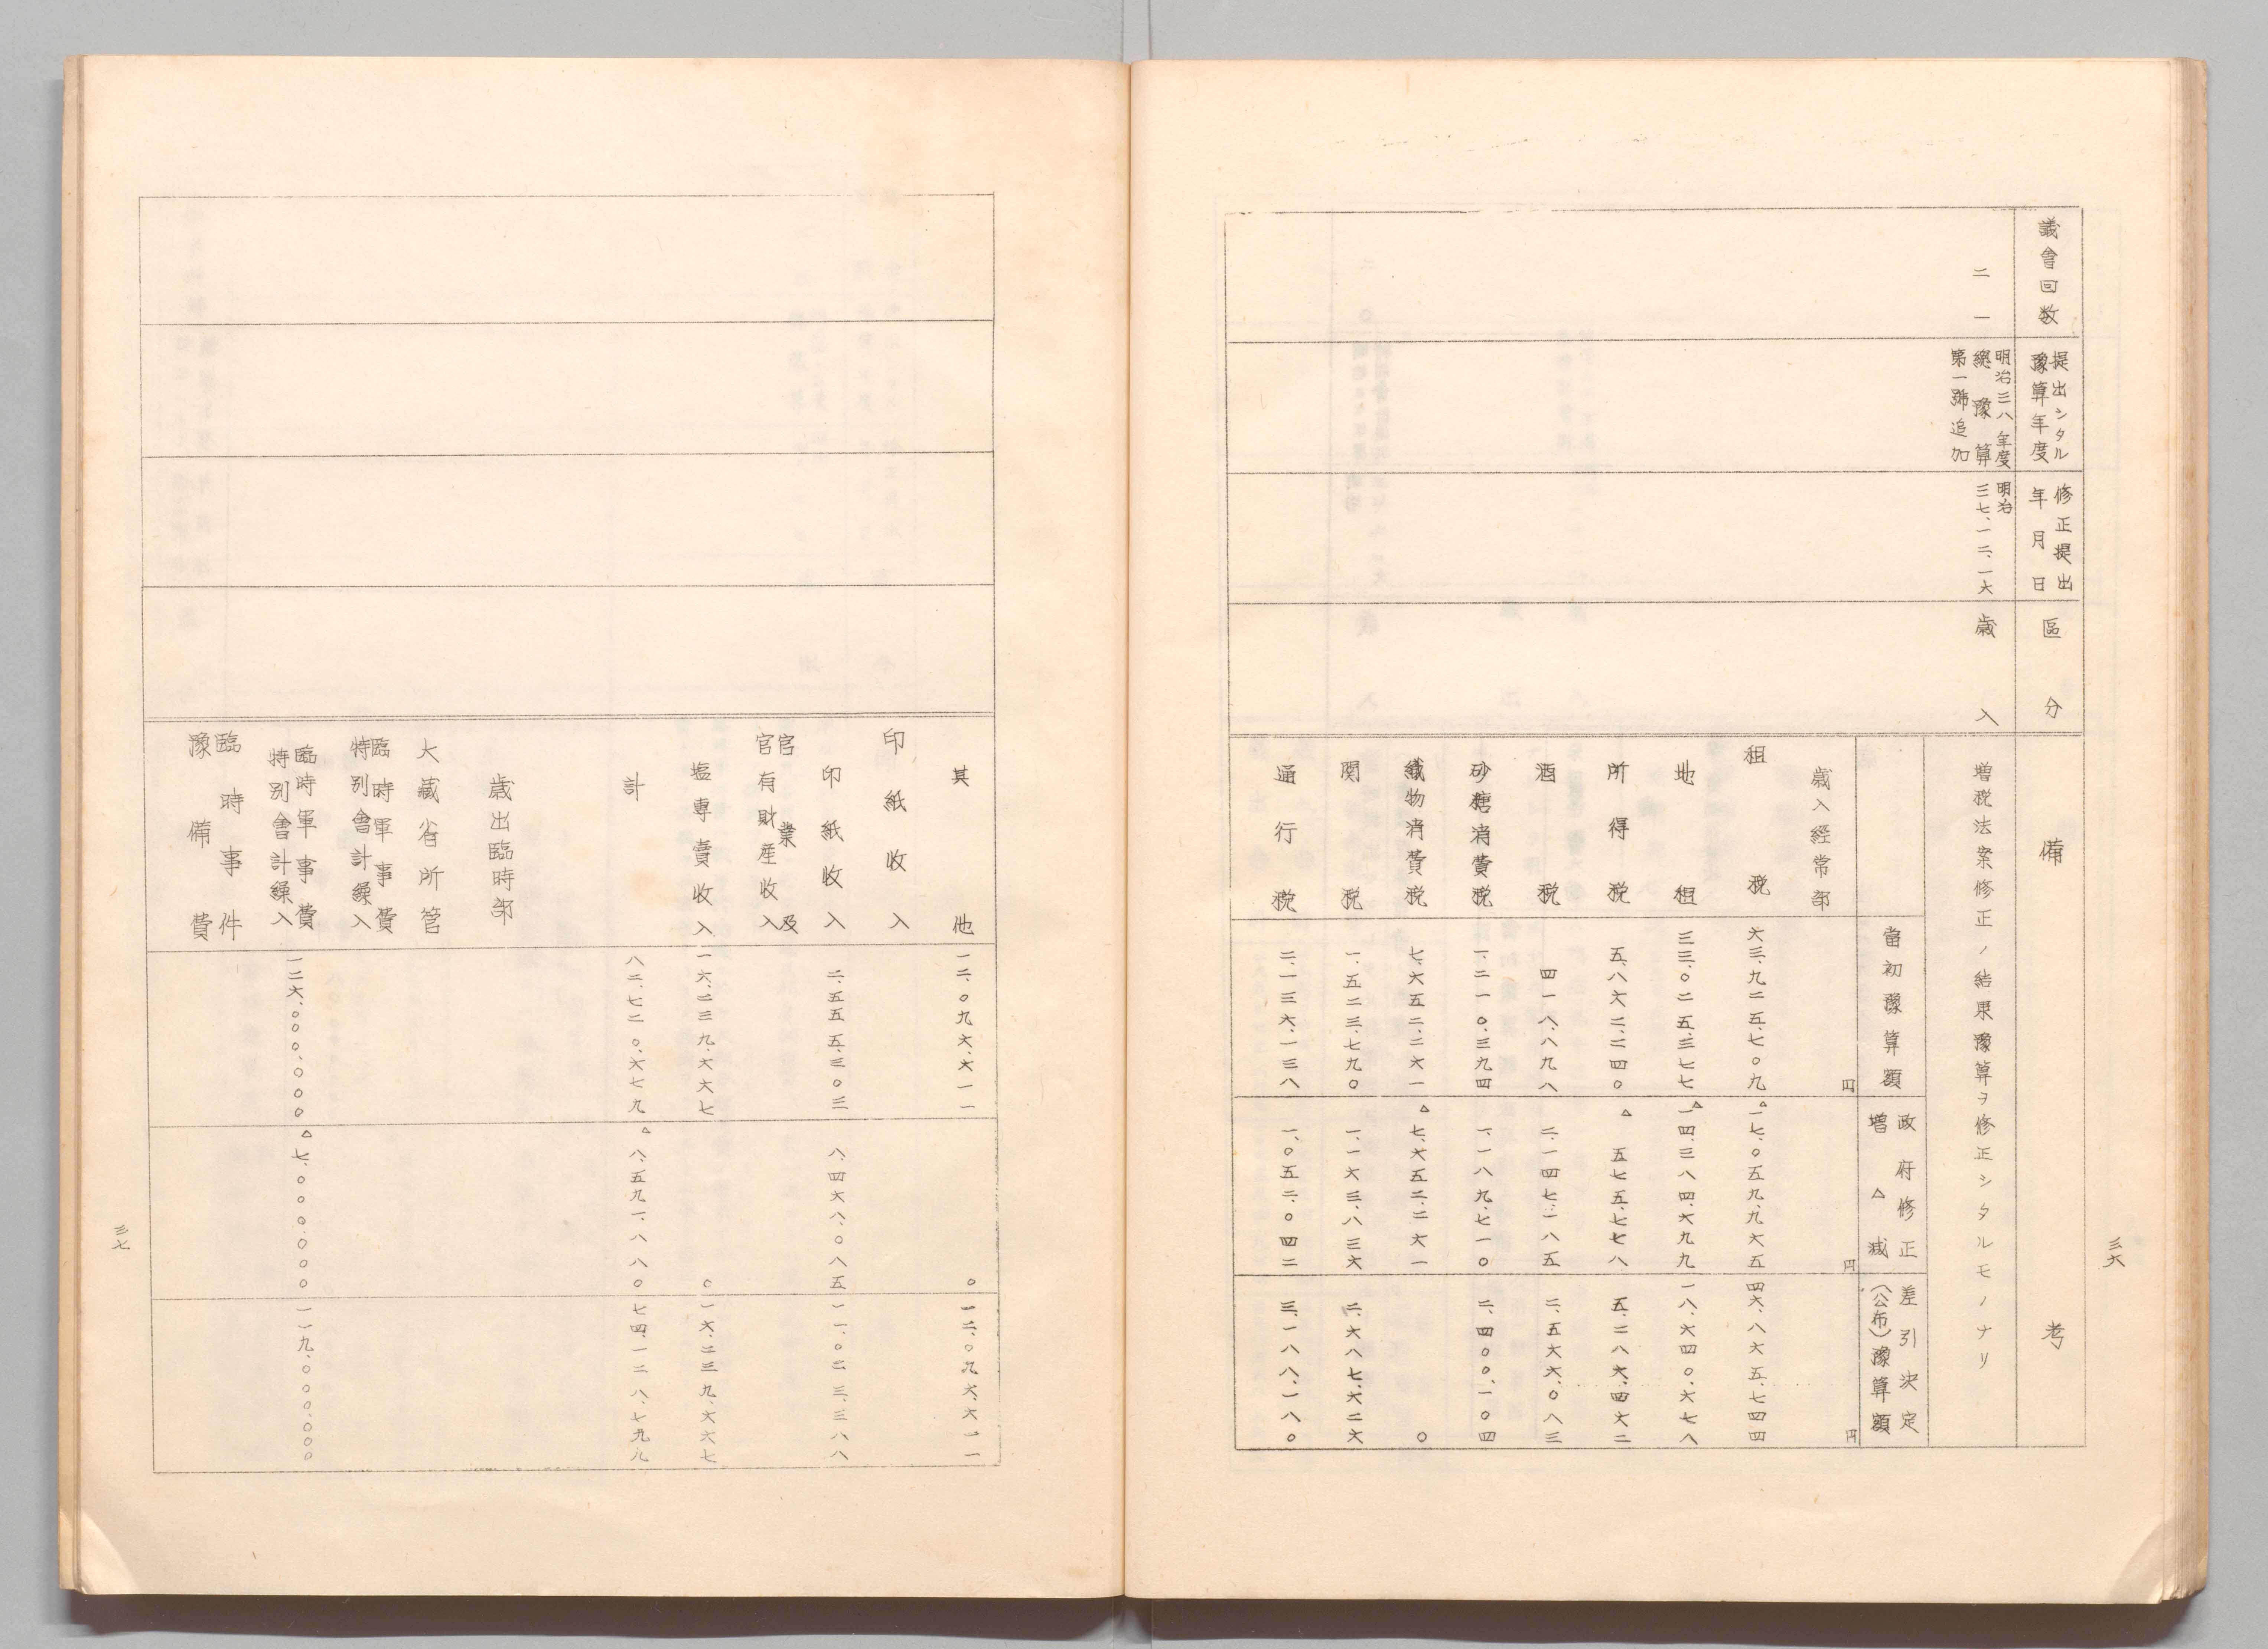 三六
議會回数
提出シタル
豫算年度
修正提出
年月日
區分
備考
二一
明治三八年度
總豫算
第一號追加
明治
三七、一二、一六
歳入
増税法案修正ノ結果豫算ヲ修正シタルモノナリ
當初豫算額
政府修正
増△減
差引決定
(公布)豫算額
歳入経常部
円
円
円
租税 六三、九二五、七〇九 △一七、〇五九、九六五 四六、八六五、七四四
地租 三三、〇二五、三七七 △一四、三八四、六九九 一八、六四〇、六七八
所得税 五、八六二、二四〇 △五七五、七七八 五、二八六、四六二
酒税 四一八、八九八 二、一四七、一八五 二、五六六、〇八三
砂糖消費税 一、二一〇、三九四 一、一八九、七一〇 二、四〇〇、一〇四
織物消費税 七、六五二、二六一 △七、六五二、二六一 〇
関税 一、五二三、七九〇 一、一六三、八三六 二、六八七、六二六
通行税 二、一三六、一三八 一、〇五二、〇四二 三、一八八、一八〇
其他 一二、〇九六、六一一 〇 一二、〇九六、六一一
印紙收入
印紙收入 二、五五五、三〇三 八、四六八、〇八五 一一、〇二三、三八八
官業及
官有財産收入
塩専賣收入 一六、二三九、六六七 〇 一六、二三九、六六七
計 八二、七二〇、六七九 △八、五九一、八八〇 七四、一二八、七九九
歳出臨時部
大藏省所管
臨時軍事費
特別會計繰入
臨時軍事費
特別會計繰入 一二六、〇〇〇、〇〇〇 △七、〇〇〇、〇〇〇 一一九、〇〇〇、〇〇〇
臨時事件
豫備費
三七